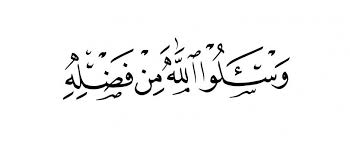 وَسْـَٔلُوا۟ ٱللَّهَ مِن فَضْلِهِۦ